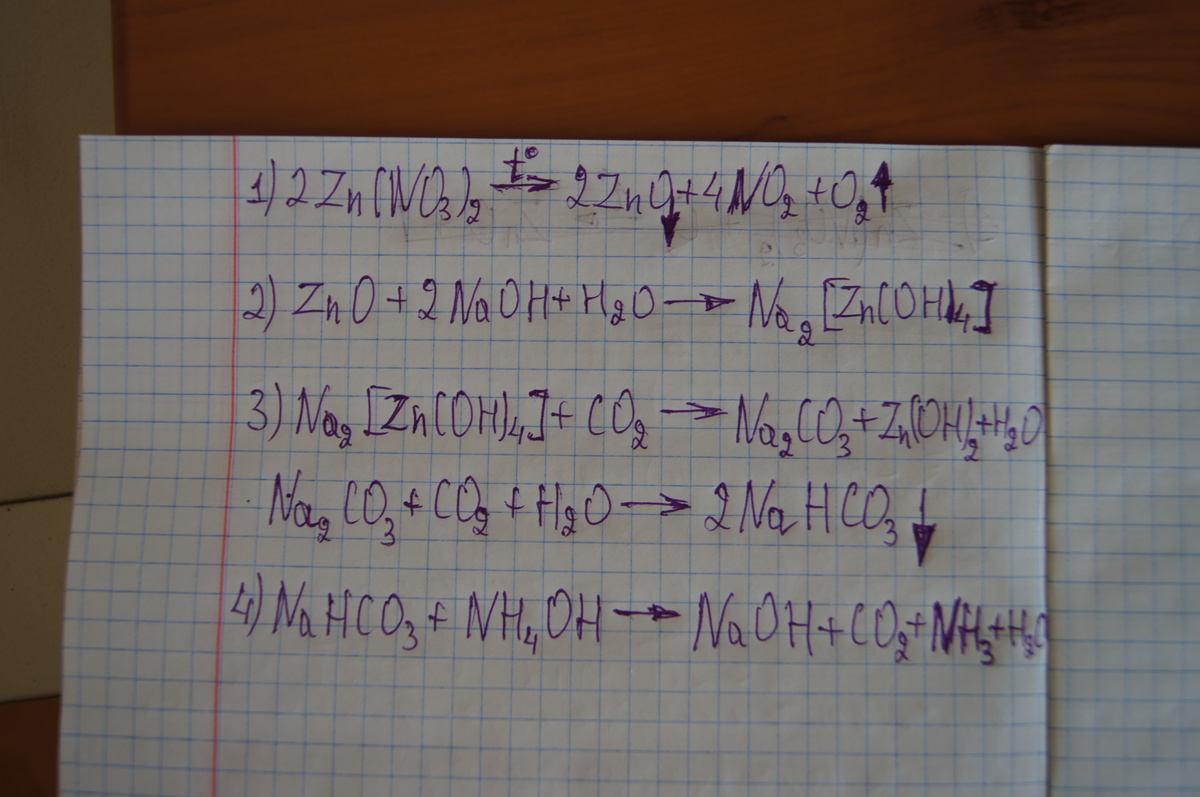 1) 2Zn(NO₃)₂ t°→ 2ZnO↓+4NO₂+O₂↑
2) ZnO+2NaOH+H₂O→Na₂[Zn(OH)₄]
3) Na₂[Zn(OH)₄]+CO₂→Na₂CO₃+Zn(OH)₂+H₂O
Na₂CO₃+CO₂+H₂O→2NaHCO₃↓
4) NaHCO₃+NH₄OH→NaOH+CO₂+NH₃+H₂O